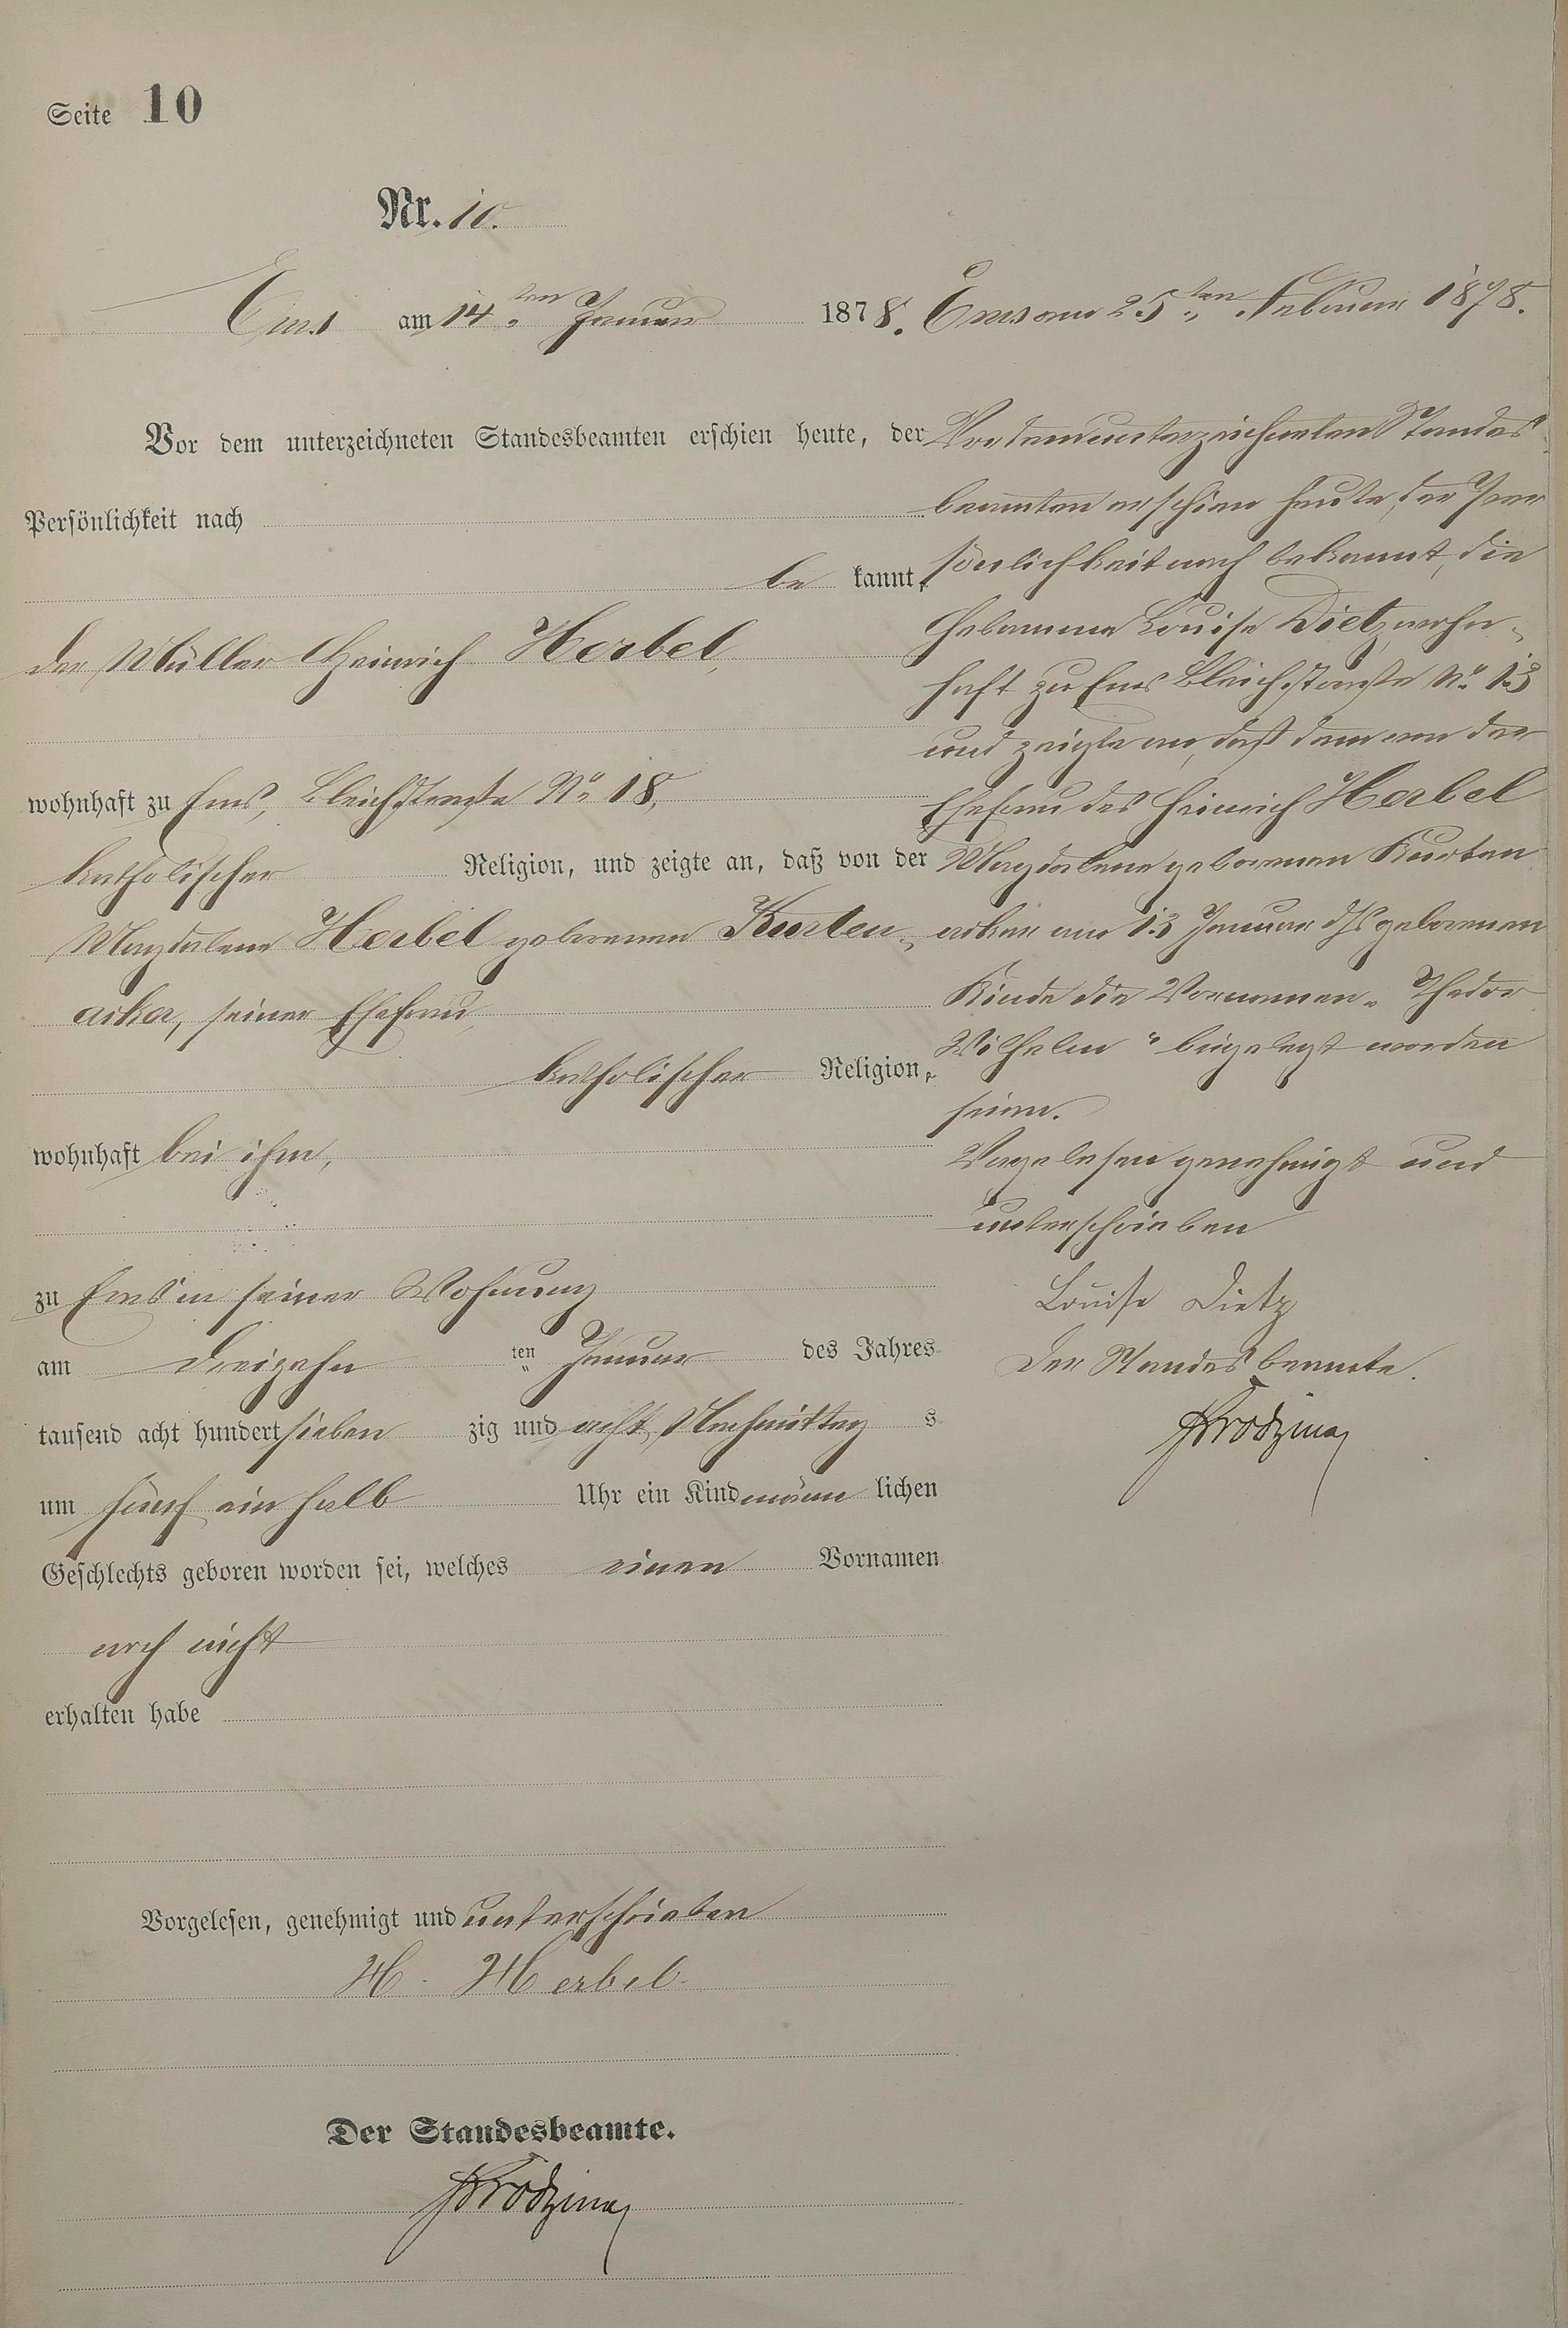 Seite 10
Nr. 10.
Ems am 14ten Januar 1878.
Vor dem unterzeichneten Standesbeamten erschien heute, der
Persönlichkeit nach
be kannt,
der Müller Heinrich Herbel,
wohnhaft zu Ems, Bleichstraße No 18,
katholischer Religion, und zeigte an, daß von der
Magdalena Herbel geborenen Kurten-
acker, seiner Ehefrau,
katholischer Religion,
wohnhaft bei ihm,
zu Ems in seiner Wohnung
am dreizehn ten Januar des Jahres
tausend acht hundert sieben zig und acht Nachmittag s
um fünf ein halb Uhr ein Kind männ lichen
Geschlechts geboren worden sei, welches einen Vornamen
noch nicht
erhalten habe
Vorgelesen, genehmigt und unterschrieben
H. Herbel
Der Standesbeamte.
Ems am 25ten Februar 1878.
Vor dem unterzeichneten Standes-
beamten erschien heute, der Per
sönlichkeit nach bekannt, die
Hebamme Louise Dietz, wohn-
haft zu Ems Bleichstraße No 13
und zeigte an, daß dem von der
Ehefrau des Heinrich Herbel
Magdalena geborenen Kurten
acker am 13 Januar geborenen
Kinde die Vornamen „Thedor
Wilhelm" beigelegt worden
seien.
Vorgelesen genehmigt und
unterschrieben
Louise Dietz
Der Standesbeamte.